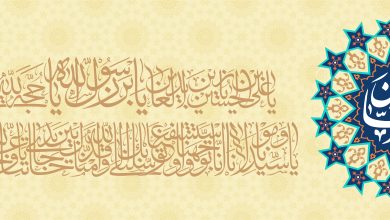 يا علي بن الحسين يا زين العابدين يا بن رسول الله يا حجة الله
يا سيدنا و مولانا انا توجهنا و استشفعنا و توسلنا بك الى الله و قدمناك بين يدي حاجاتنا